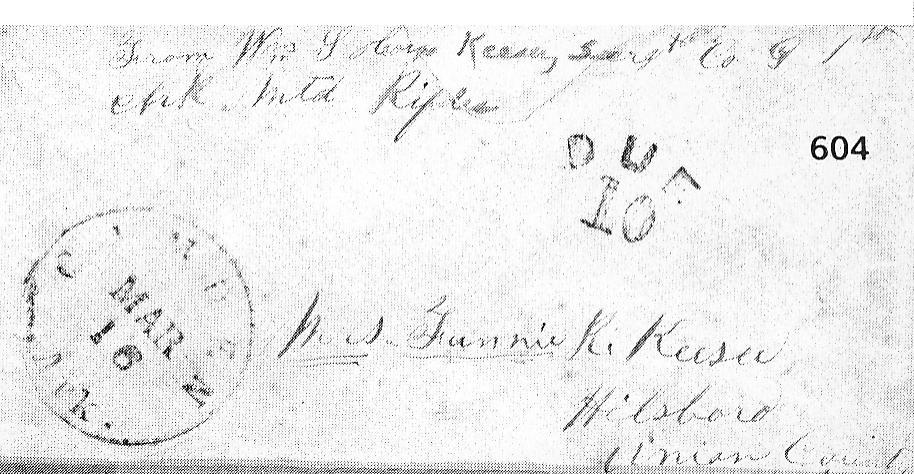 From Wm Keesee, Sergt Co. G 1st
Ark Mtd Rifles
DUE
10
604
CAMDEN
MAR
16
Ark.
Mrs. Fannie K. Keesee
Hilsboro
Union Count